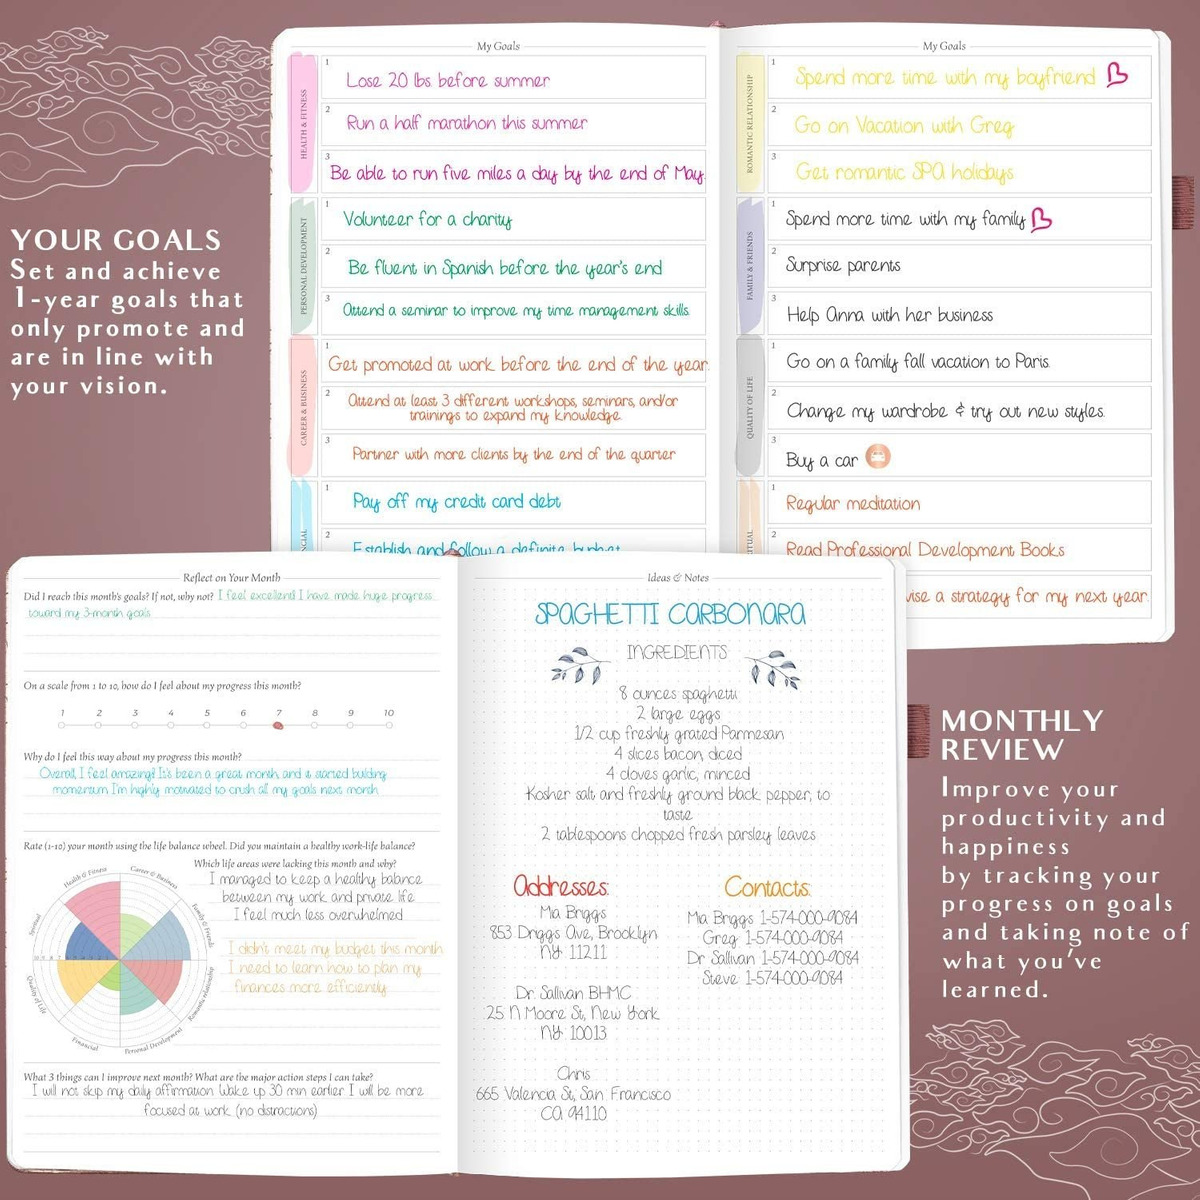 YOUR GOALS
Set and achieve
1-year goals that
only promote and
are in line with
your vision.
My Goals
HEALTH & FITNESS
1
Lose 20 lbs. before summer
2
Run a half marathon this summer
3
Be able to run five miles a day by the end of May.
PERSONAL DEVELOPMENT
1
Volunteer for a charity
2
Be fluent in Spanish before the year's end
3
Attend a seminar to improve my time management skills.
CAREER & BUSINESS
1
Get promoted at work before the end of the year.
2
Attend at least 3 different workshops, seminars, and/or
trainings to expand my knowledge.
3
Partner with more clients by the end of the quarter
1
Pay off my credit card debt
2
Establish and follow a definite budget
My Goals
ROMANTIC RELATIONSHIP
1
Spend more time with my boyfriend
2
Go on Vacation with Greg
3
Get romantic SPA holidays
FAMILY & FRIENDS
1
Spend more time with my family
2
Surprise parents
3
Help Anna with her business
QUALITY OF LIFE
1
Go on a family fall vacation to Paris.
2
Change my wardrobe & try out new styles.
3
Buy a car
1
Regular meditation
2
Read Professional Development Books
a strategy for my next year.
Reflect on Your Month
Did I reach this month's goals? If not, why not? I feel excellent! I have made huge progress
toward my 3-month goals
On a scale from 1 to 10, how do I feel about my progress this month?
1 2 3 4 5 6 7 8 9 10
Why do I feel this way about my progress this month?
Overall, I feel amazing! It's been a great month, and it started building
momentum. I'm highly motivated to crush all my goals next month.
Rate (1-10) your month using the life balance wheel. Did you maintain a healthy work-life balance?
Which life areas were lacking this month and why?
Health & Fitness
Career & Business
Family & Friends
Romantic relationship
Personal Development
Financial
Quality of Life
Spiritual
I managed to keep a healthy balance
between my work and private life.
I feel much less overwhelmed
I didn't meet my budget this month
I need to learn how to plan my
finances more efficiently
What 3 things can I improve next month? What are the major action steps I can take?
I will not skip my daily affirmation. Wake up 30 min earlier. I will be more
focused at work (no distractions)
Ideas & Notes
SPAGHETTI CARBONARA
INGREDIENTS
8 ounces spaghetti
2 large eggs
1/2 cup freshly grated Parmesan
4 slices bacon, diced
4 cloves garlic, minced
Kosher salt and freshly ground black pepper, to
taste
2 tablespoons chopped fresh parsley leaves
Addresses:
Ma Briggs
853 Driggs Ave, Brooklyn
NY 11211
Dr Sallivan BHMC
25 N Moore St, New York
NY 10013
Chris
665 Valencia St, San Francisco
CA 94110
Contacts:
Ma Briggs 1-574-000-9084
Greg 1-574-000-9084
Dr Sallivan 1-574-000-9084
Steve 1-574-000-9084
MONTHLY
REVIEW
Improve your
productivity and
happiness
by tracking your
progress on goals
and taking note of
what you've
learned.